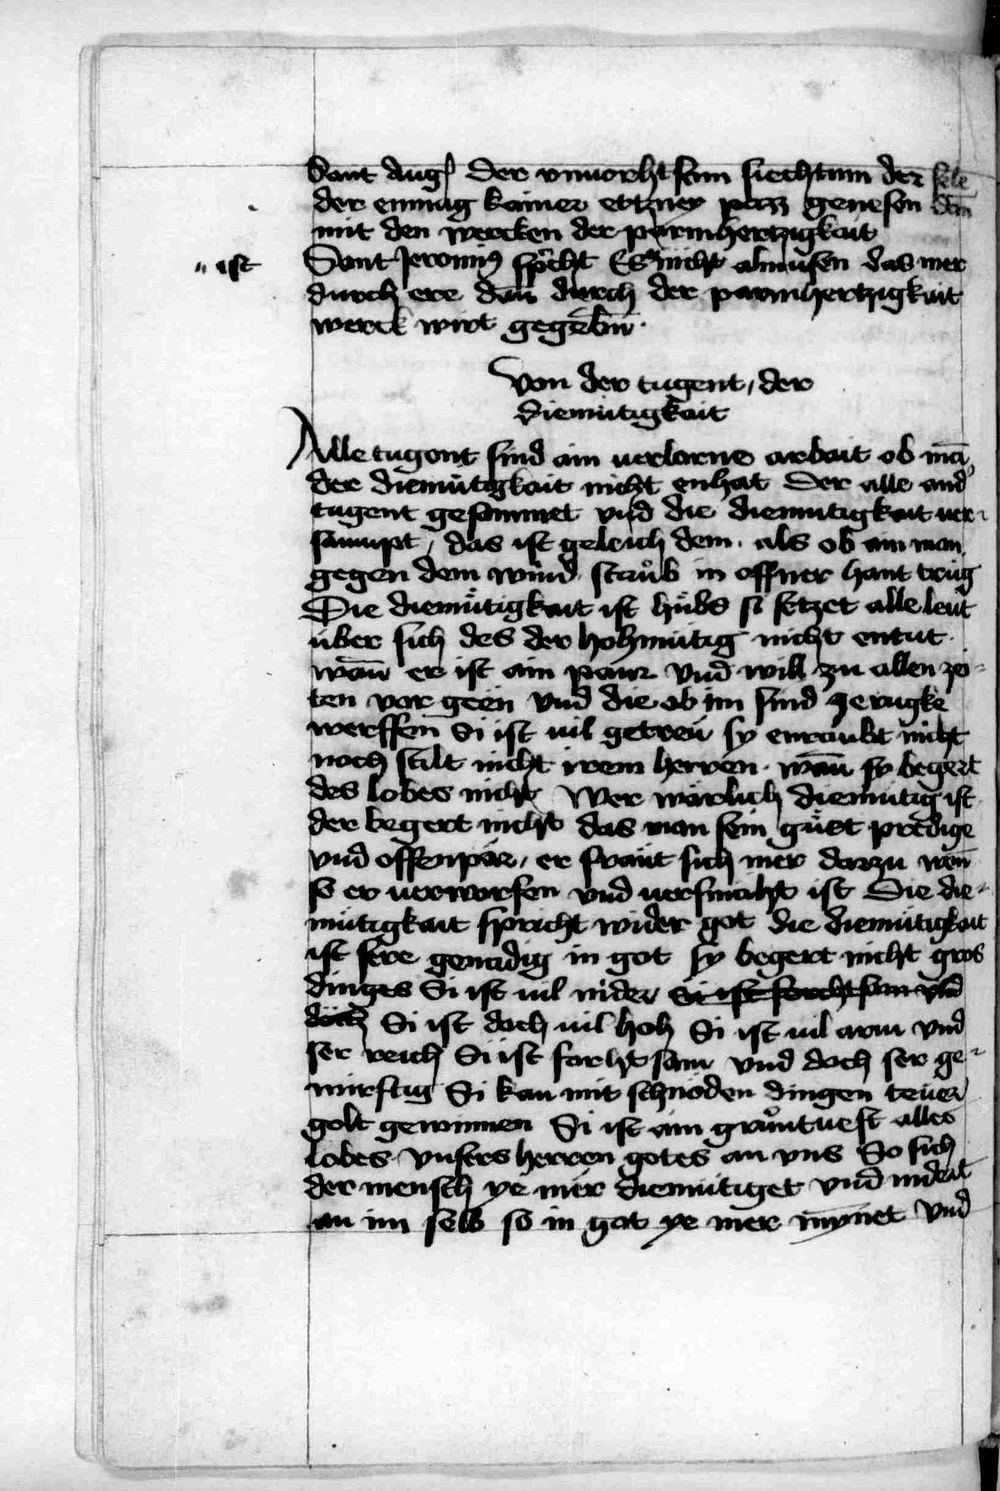 Sant Aug der vnuorhtsam siechtum der sele
der enmag kainer ertzney pazz genesen dan̄
mit den wercken der parmhertzigkait
Sant Jeronimꝰ spͥcht Es " nicht almusen das mer
" ist
durch ere dan̄ durch der parmhertzigkait
werck wirt gegebn̄.
Von der tugent, der
diemütigkait
Alle tugent sind ain uerlorne arbait ob mā
der diemütigkait nicht enhat Der alle and̕
tugent gesammet vnd die diemütigkait uer-
saumpt, das ist geleich dem. als ob ain man
gegen dem wind staͧb in offner hant trüg
Die diemuͤtigkait ist huͤbs si setzet alle leut
über sich des der hohmütig nicht entut.
wān er ist ain paur vnd will zu allen zei-
ten vor geen vnd die ob im sind zerugke
werffen Si ist uil getreü sy enraubt nicht
noch stilt nicht irem herren. wān sy begert
des lobes nicht Wer warlich diemütig ist
der begert nicht das man sein guͤet predige
vnd offenpär, er fräut sich mer darzu wen̄
so er uerworfen vnd uersmäht ist Die die-
mütigkait spricht wider got die diemütigkait
ist sere genädig in got sy begert nicht gros
dinges Si ist uil nider Si ist forchtsam vnd
doch Si ist doch uil hoh Si ist uil arm vnd
ser reich Si ist forhtsam vnd doch ser ge-
mirftig Si kan mit schnöden dingen teuer
golt gewinnen Si ist ain gruͦntuest alles
lobes vnsers herren gotes an vns So sich
der mensch ye mer diemütiget vnd nidert
an im selb so in got ye mer mynet vnd